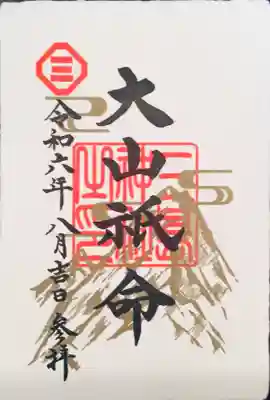 大山祇命
令和六年 八月吉日 参拝
三